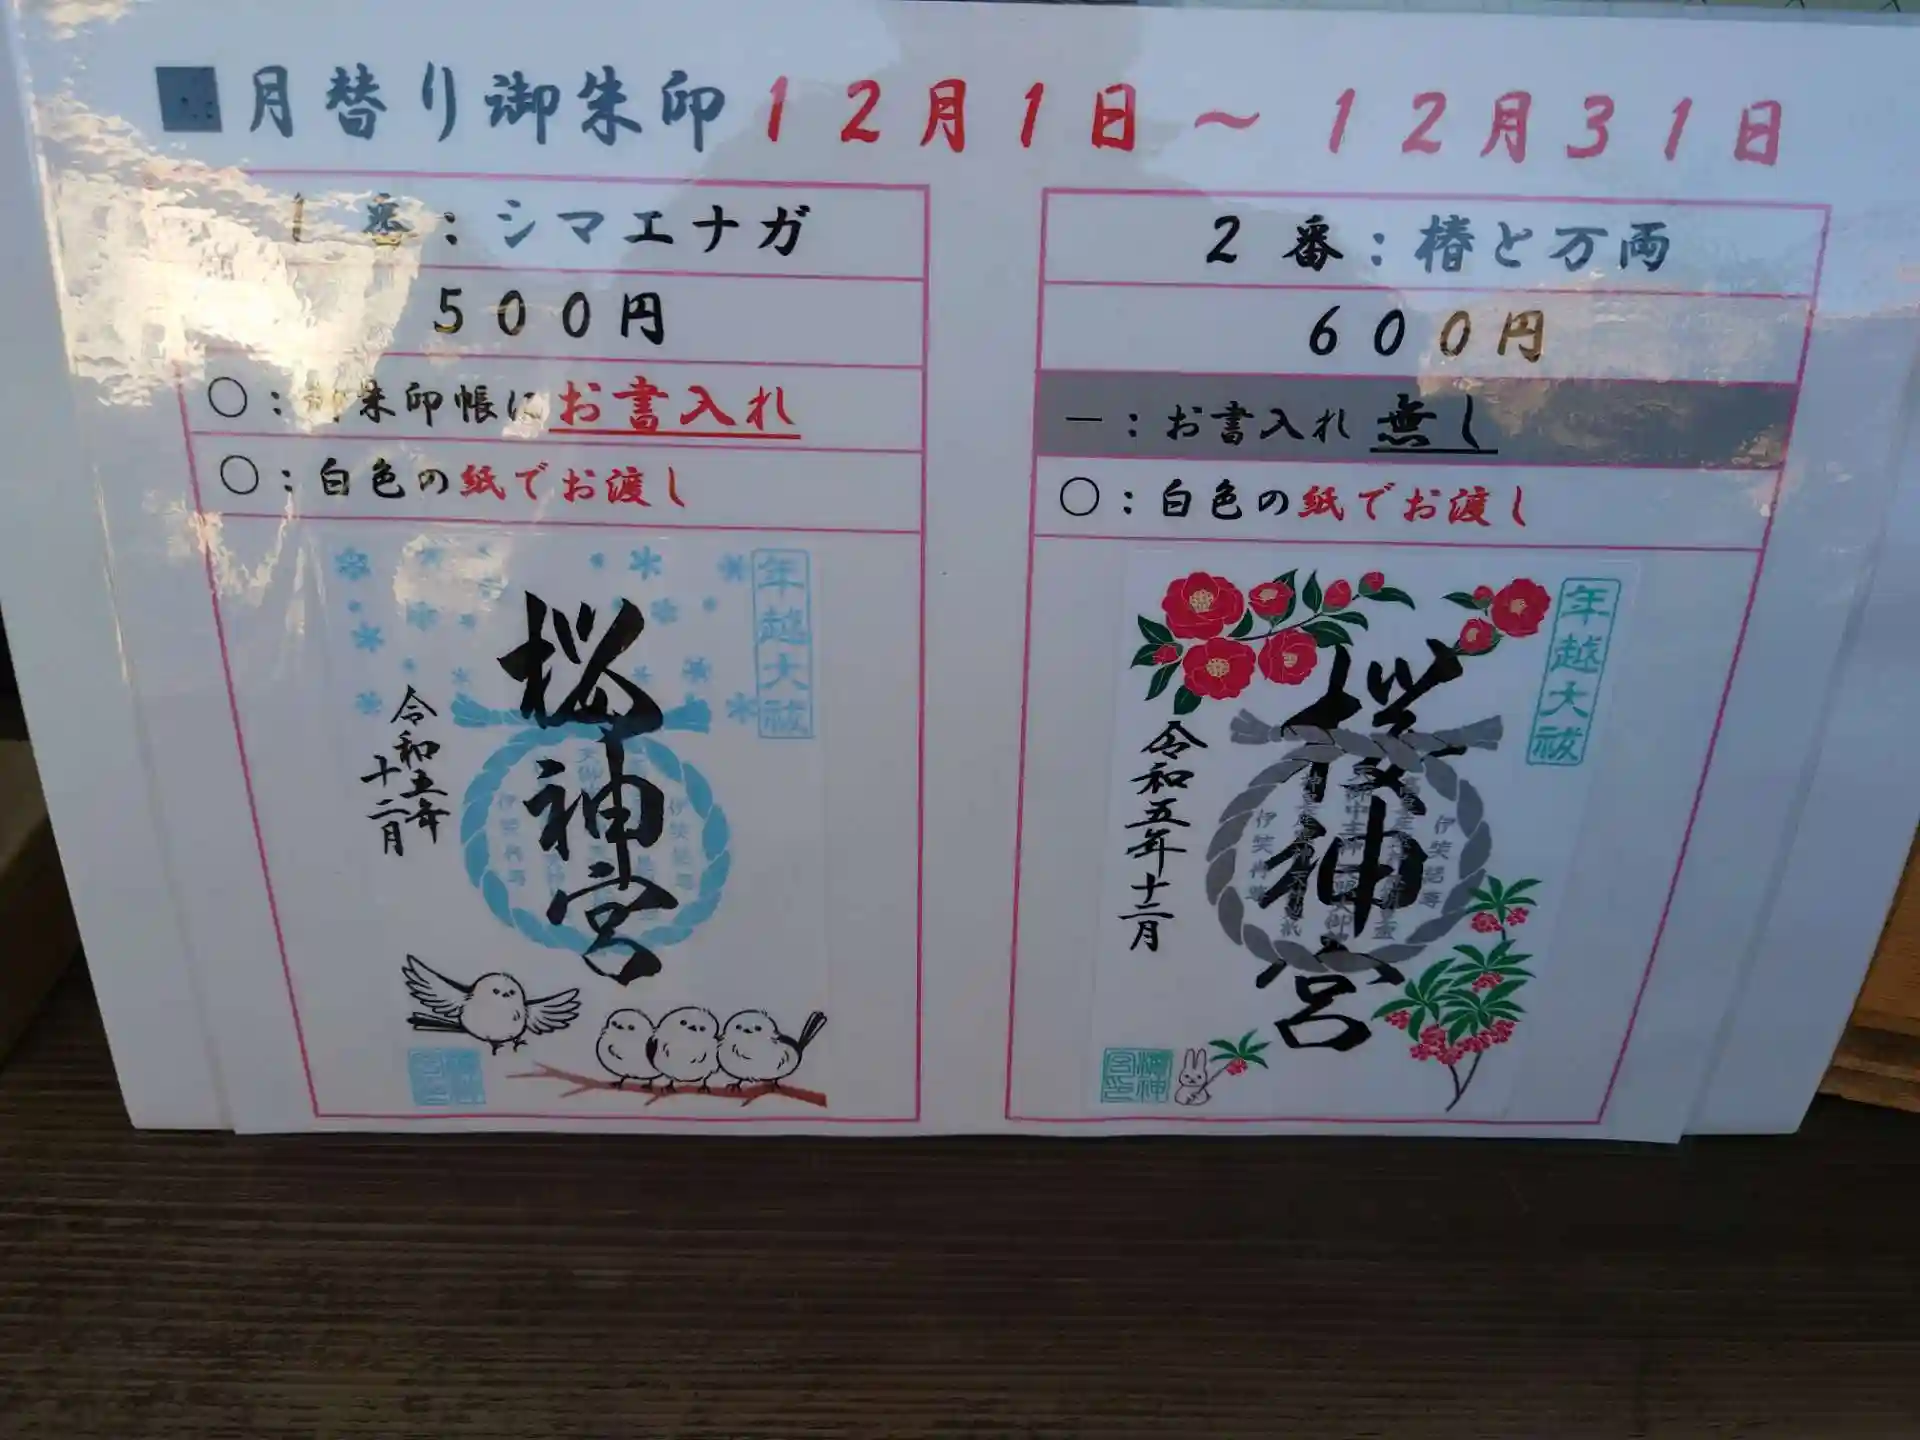 月替り御朱印12月1日～12月31日
1番：シマエナガ
500円
○：御朱印帳にお書入れ
○：白色の紙でお渡し
年越大祓
桜神宮
令和五年
十二月
2番：椿と万両
600円
－：お書入れ無し
○：白色の紙でお渡し
年越大祓
桜神宮
令和五年十二月